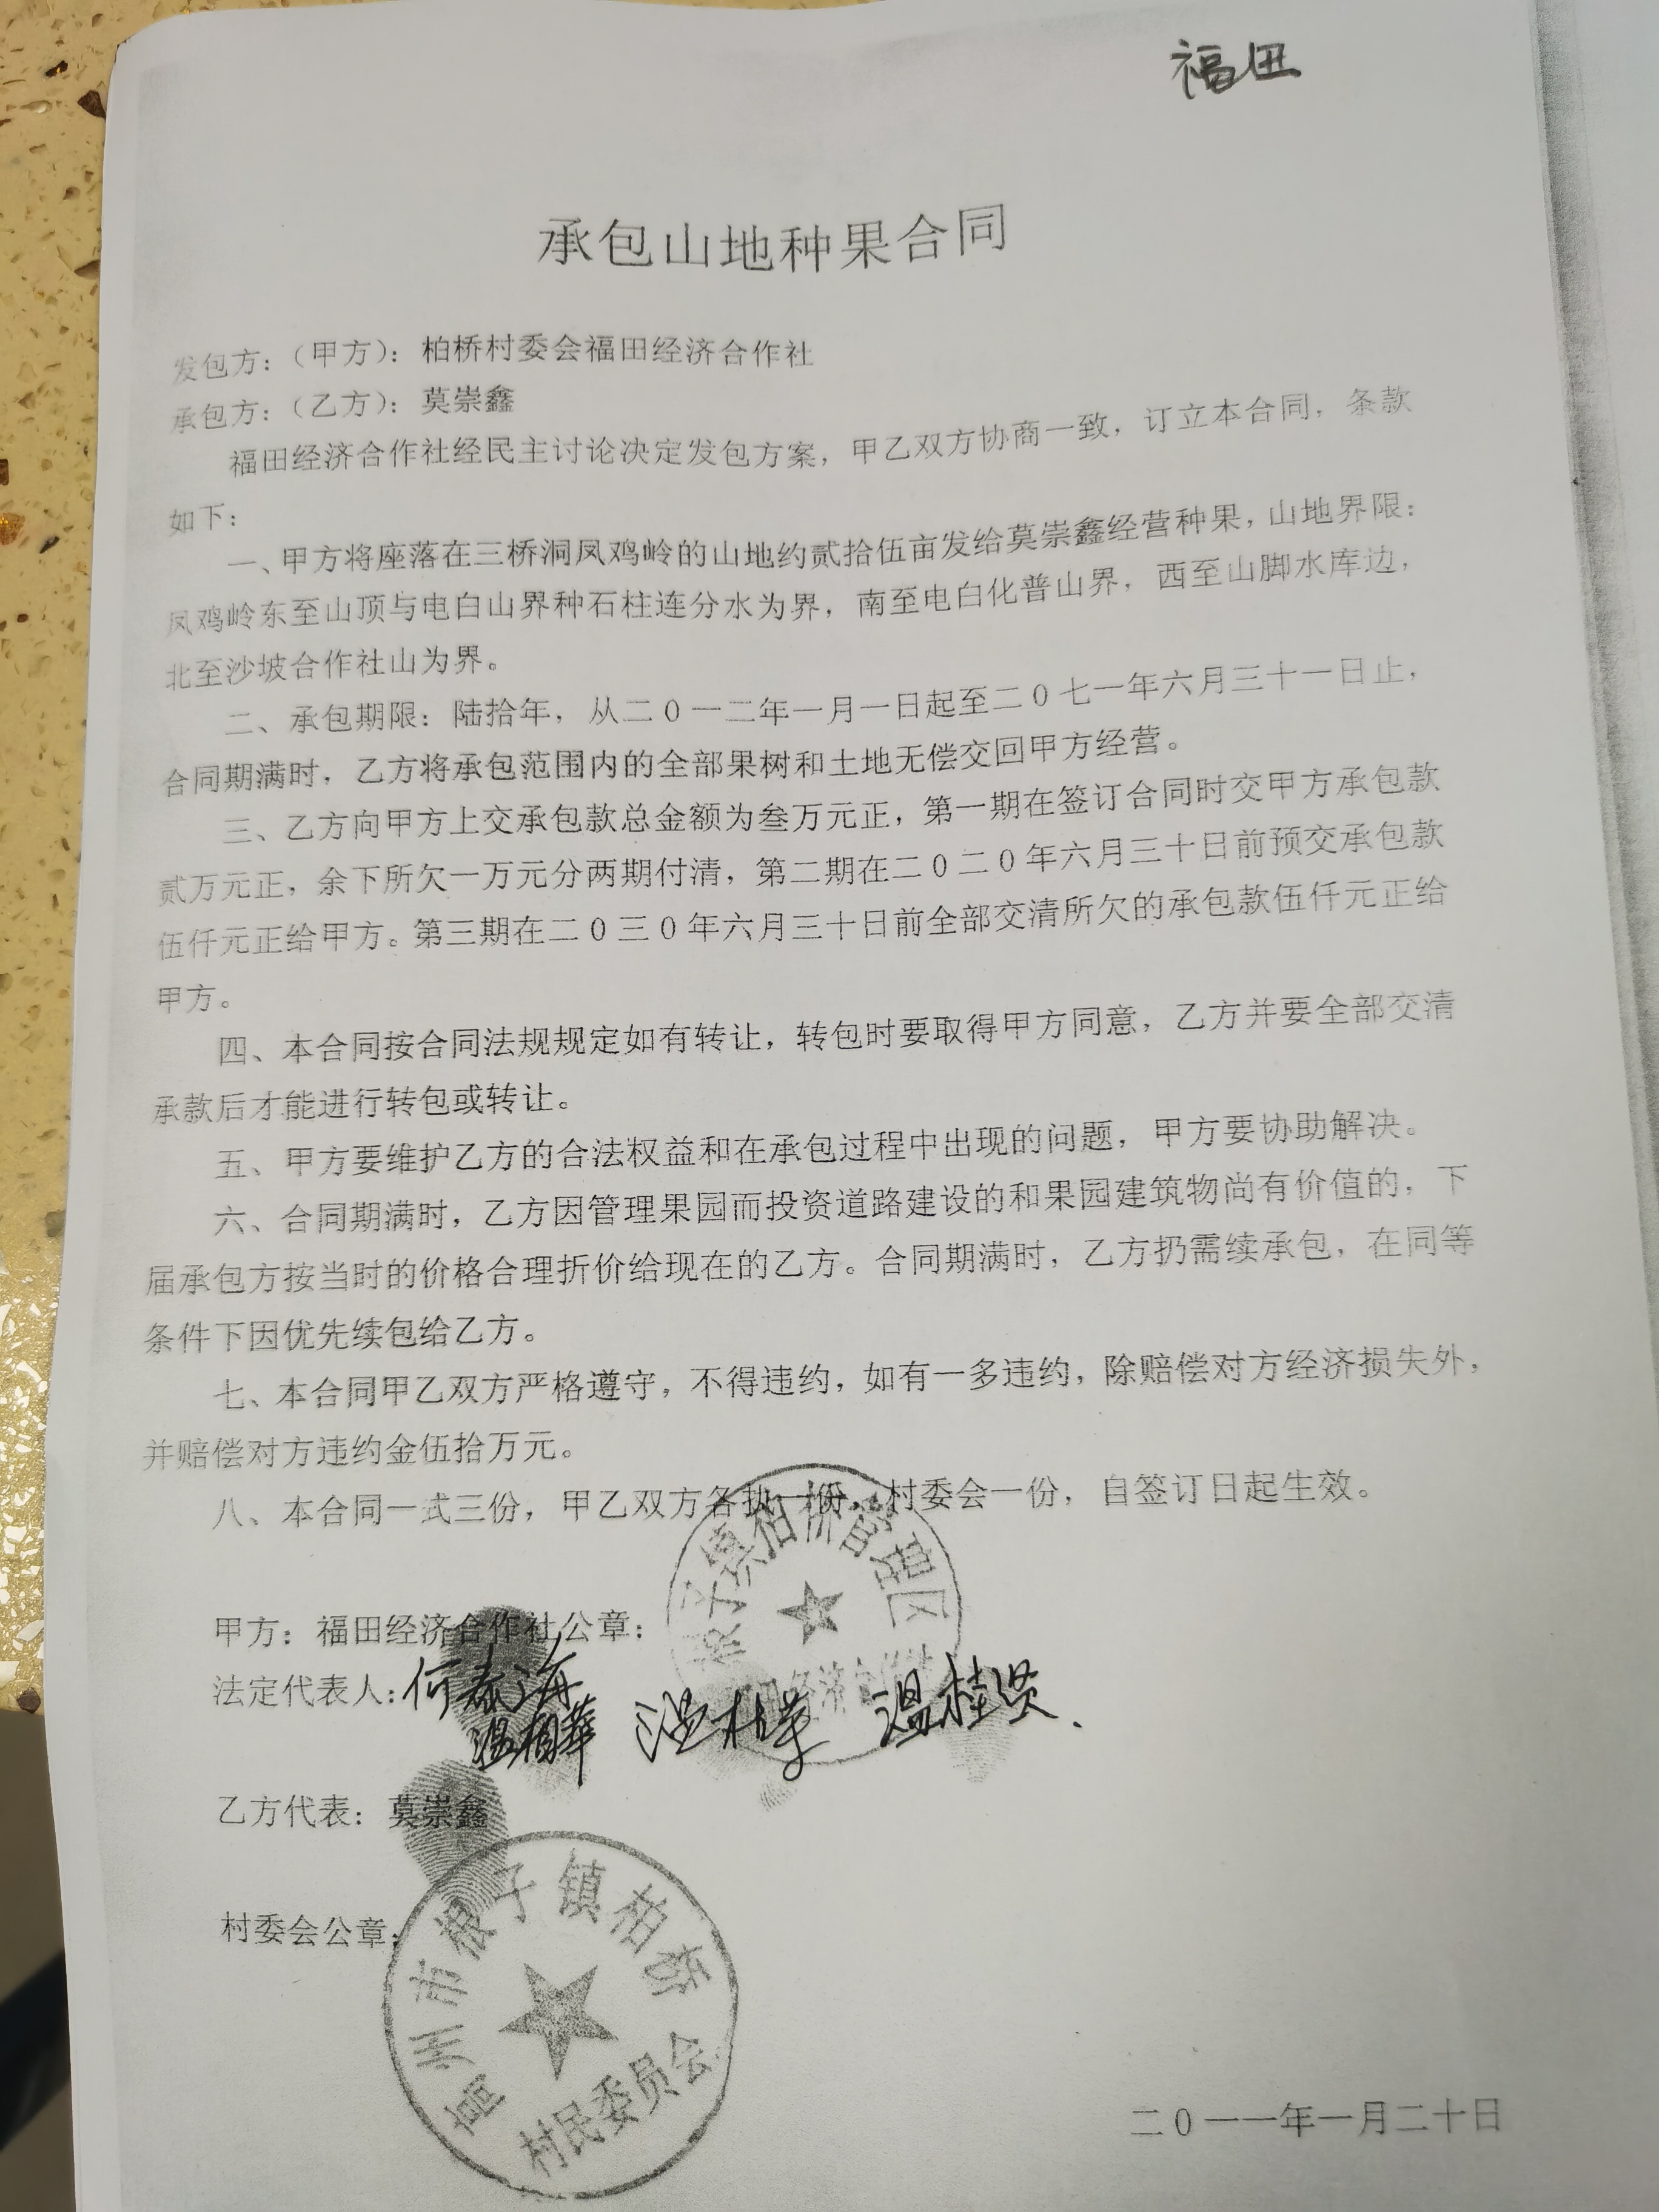 福田
承包山地种果合同
发包方：（甲方）：柏桥村委会福田经济合作社
承包方：（乙方）：莫崇鑫
福田经济合作社经民主讨论决定发包方案，甲乙双方协商一致，订立本合同，条款
如下：
一、甲方将座落在三桥洞凤鸡岭的山地约贰拾伍亩发给莫崇鑫经营种果，山地界限：
凤鸡岭东至山顶与电白山界种石柱连分水为界，南至电白化普山界，西至山脚水库边，
北至沙坡合作社山为界。
二、承包期限：陆拾年，从二0一二年一月一日起至二0七一年六月三十一日止，
合同期满时，乙方将承包范围内的全部果树和土地无偿交回甲方经营。
三、乙方向甲方上交承包款总金额为叁万元正，第一期在签订合同时交甲方承包款
贰万元正，余下所欠一万元分两期付清，第二期在二0二0年六月三十日前预交承包款
伍仟元正给甲方。第三期在二0三0年六月三十日前全部交清所欠的承包款伍仟元正给
甲方。
四、本合同按合同法规规定如有转让，转包时要取得甲方同意，乙方并要全部交清
承款后才能进行转包或转让。
五、甲方要维护乙方的合法权益和在承包过程中出现的问题，甲方要协助解决。
六、合同期满时，乙方因管理果园而投资道路建设的和果园建筑物尚有价值的，下
届承包方按当时的价格合理折价给现在的乙方。合同期满时，乙方扔需续承包，在同等
条件下因优先续包给乙方。
七、本合同甲乙双方严格遵守，不得违约，如有一多违约，除赔偿对方经济损失外，
并赔偿对方违约金伍拾万元。
八、本合同一式三份，甲乙双方各执一份，村委会一份，自签订日起生效。
根子镇柏桥管理区
经济合作社
甲方：福田经济合作社公章：
法定代表人：何泰海
温桂贤
乙方代表：莫崇鑫
村委会公章：
高州市根子镇柏桥
村民委员会
二0一一年一月二十日